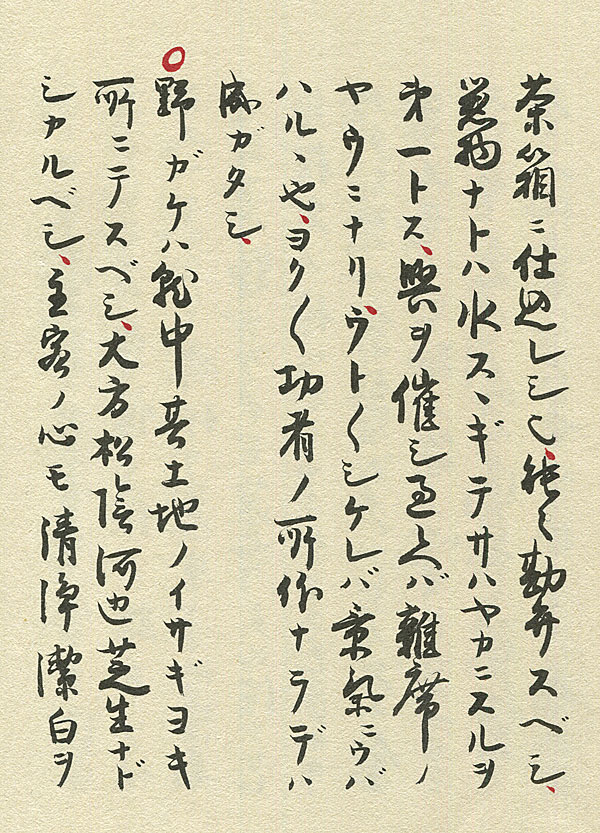 茶箱ニ仕込レシ也、能々勘弁スベシ、
惣物ナトハ水スヽギテサハヤカニスルヲ
第一トス、興ヲ催シ過レバ離席ノ
ヤウニナリ、ウト〱シケレバ景氣ニウバ
ハルヽ也、ヨク〱功者ノ所作ナラデハ
成ガタシ、
○野ガケハ就中其土地ノイサギヨキ
所ニテスベシ、大方松陰河辺芝生ナド
シカルベシ、主客ノ心モ清浄潔白ヲ